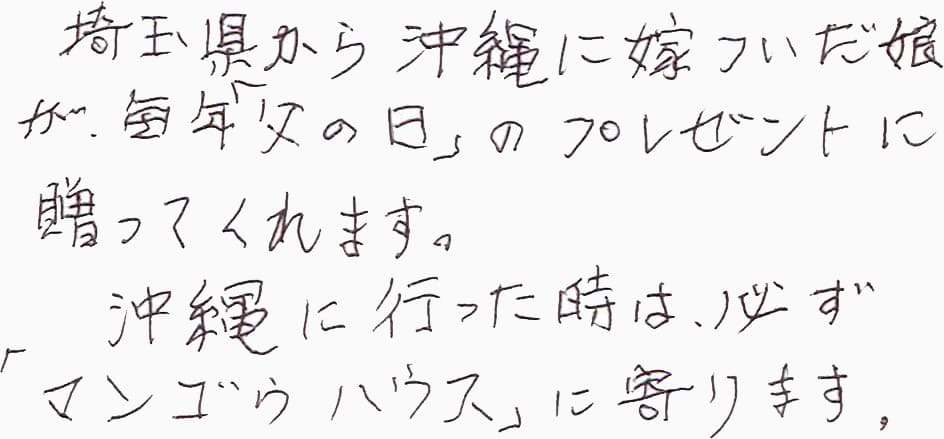 埼玉県から沖縄に嫁ついだ娘
が、毎年「父の日」のプレゼントに
贈ってくれます。
沖縄に行った時は、必ず
「マンゴウハウス」に寄ります。